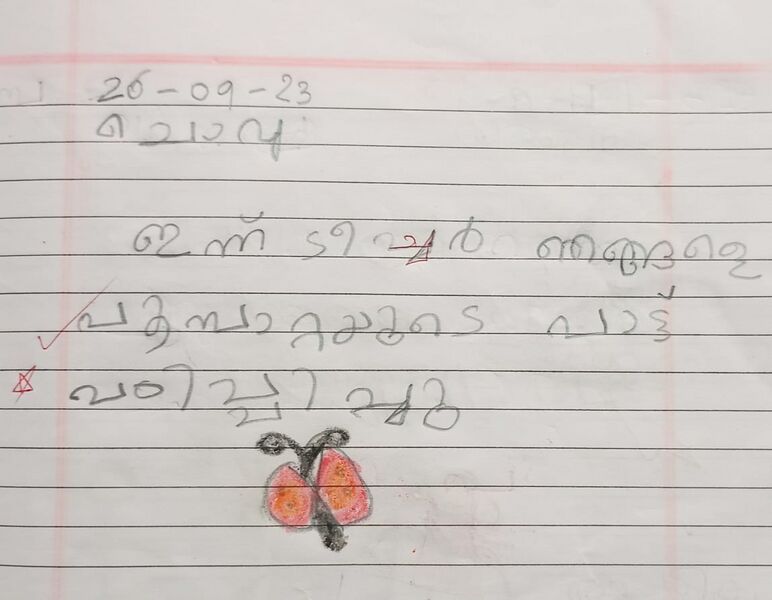 26-09-23
ചൊവ്വ
ഇന്ന് ടീച്ചർ ഞങ്ങളെ
പൂമ്പാറ്റയുടെ പാട്ട്
പഠിപ്പിച്ചു